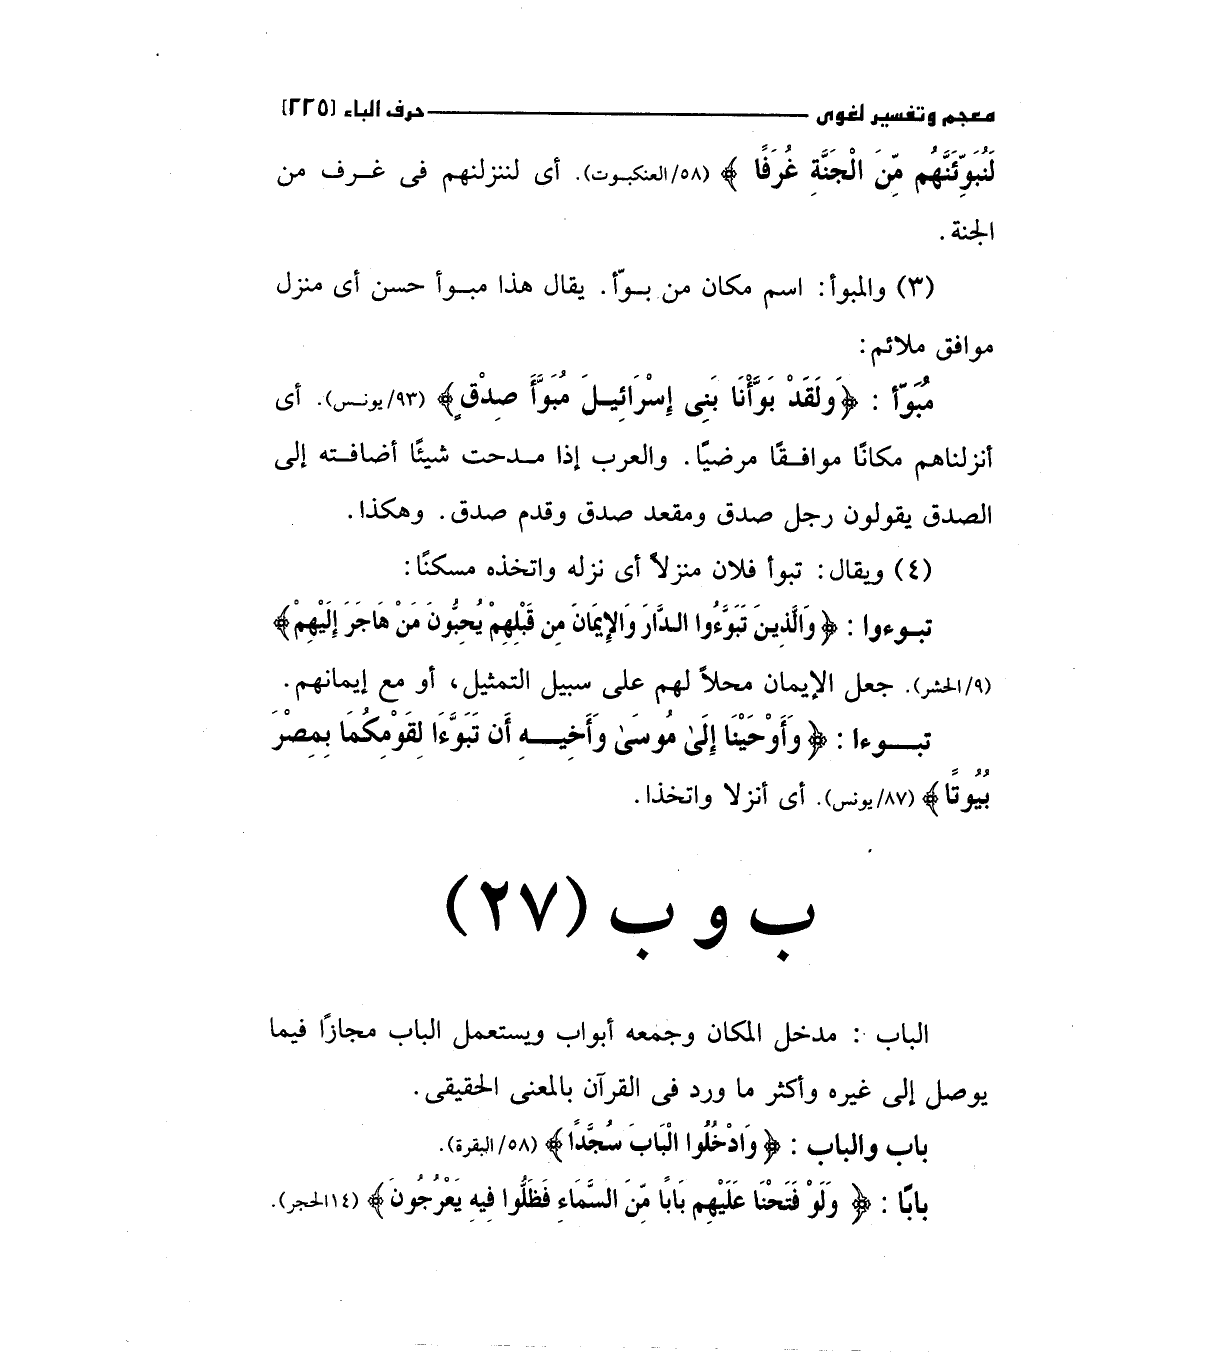 معجم وتفسير لغوى — حرف الباء [٢٢٥]
لَنُبَوِّئَنَّهُم مِّنَ الْجَنَّةِ غُرَفًا ﴾ (٥٨/العنكبوت). أى لننزلنهم فى غرف من
الجنة.
(٣) والمبوأ: اسم مكان من بوّأ. يقال هذا مبوأ حسن أى منزل
موافق ملائم:
مُبَوّأ : ﴿وَلَقَدْ بَوَّأْنَا بَنِى إِسْرَائِيلَ مُبَوَّأَ صِدْقٍ﴾ (٩٣/يونس). أى
أنزلناهم مكانًا موافقًا مرضيًا. والعرب إذا مدحت شيئًا أضافته إلى
الصدق يقولون رجل صدق ومقعد صدق وقدم صدق. وهكذا.
(٤) ويقال: تبوأ فلان منزلاً أى نزله واتخذه مسكنًا:
تبوءوا : ﴿وَالَّذِينَ تَبَوَّءُوا الدَّارَ وَالإِيمَانَ مِن قَبْلِهِمْ يُحِبُّونَ مَنْ هَاجَرَ إِلَيْهِمْ﴾
(٩/الحشر). جعل الإيمان محلاً لهم على سبيل التمثيل، أو مع إيمانهم.
تبوءا : ﴿وَأَوْحَيْنَا إِلَىٰ مُوسَىٰ وَأَخِيهِ أَن تَبَوَّءَا لِقَوْمِكُمَا بِمِصْرَ
بُيُوتًا﴾ (٨٧/يونس). أى أنزلا واتخذا.
ب و ب (٢٧)
الباب : مدخل المكان وجمعه أبواب ويستعمل الباب مجازًا فيما
يوصل إلى غيره وأكثر ما ورد فى القرآن بالمعنى الحقيقى.
باب والباب : ﴿وَادْخُلُوا الْبَابَ سُجَّدًا﴾ (٥٨/البقرة).
بابًا : ﴿ وَلَوْ فَتَحْنَا عَلَيْهِم بَابًا مِّنَ السَّمَاءِ فَظَلُّوا فِيهِ يَعْرُجُونَ﴾ (١٤الحجر).